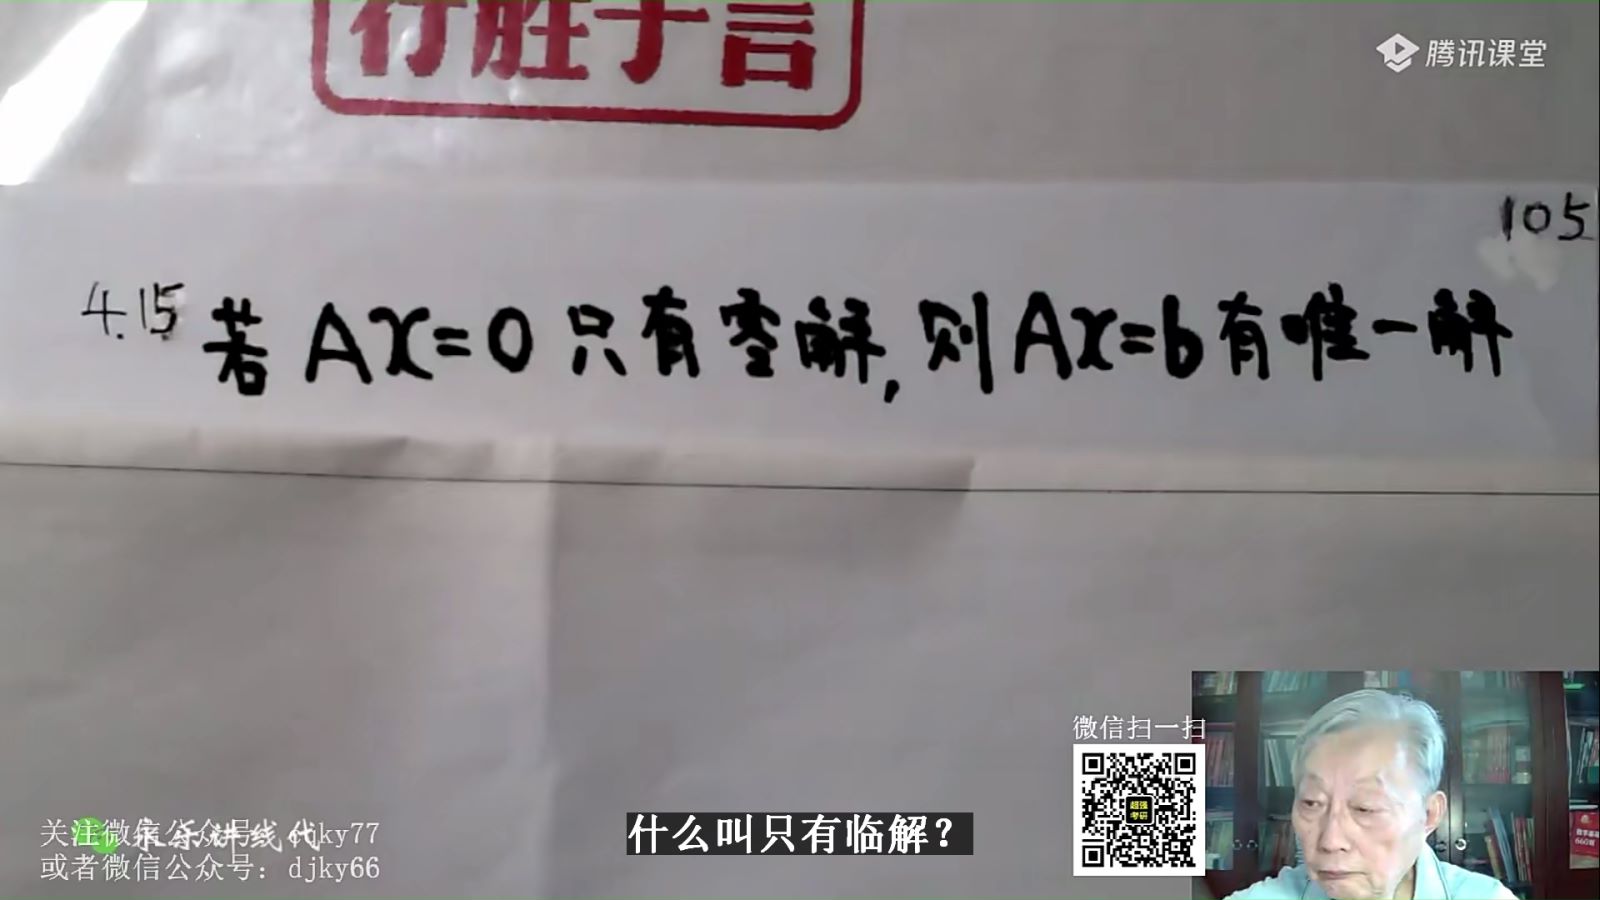 行胜于言
腾讯课堂
105
4.15 若Ax=0只有零解,则Ax=b有唯一解
微信扫一扫
超强
考研
什么叫只有临解？
永乐讲线代
关注微信公众号：djky77
或者微信公众号：djky66